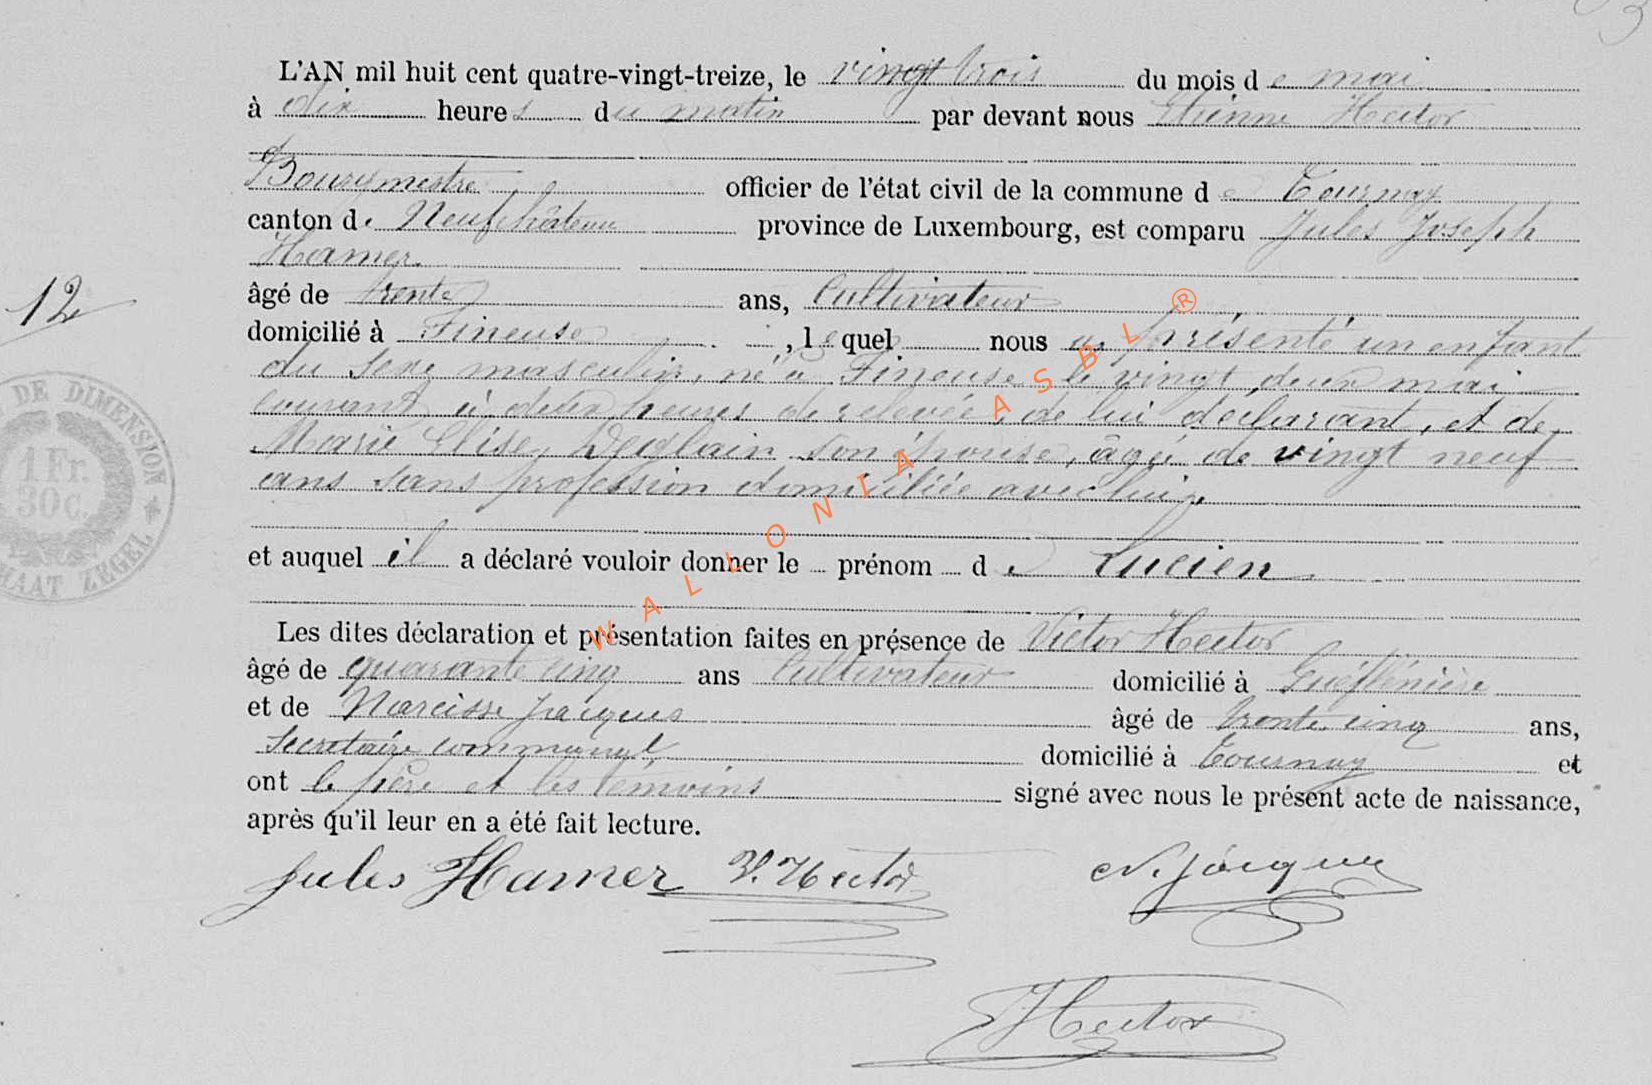 L'AN mil huit cent quatre-vingt-treize, le vingt trois du mois de mai
à dix heures du matin par devant nous Etienne Hector
Bourgmestre officier de l'état civil de la commune de Tournay
canton de Neufchâteau province de Luxembourg, est comparu Jules Joseph
Hamer
âgé de trente ans, Cultivateur
12
domicilié à Fineuse, lequel nous a présenté un enfant
du sexe masculin, né à Fineuse le vingt deux mai
courant à deux heures de relevée, de lui déclarant, et de
Marie Elise son épouse, âgée de vingt neuf
ans sans profession domiciliée avec lui
et auquel il a déclaré vouloir donner le prénom de Lucien
Les dites déclaration et présentation faites en présence de Victor Hector
âgé de quarante cinq ans Cultivateur domicilié à
et de Narcisse Jacques âgé de trente cinq ans,
Secrétaire communal domicilié à Tournay et
ont le père et les témoins signé avec nous le présent acte de naissance,
après qu'il leur en a été fait lecture.
Jules Hamer V. Hector N. Jacques
Hector
DE DIMENSION
1 Fr.
30 c.
ZEGEL
WALLONIA ASBL ®